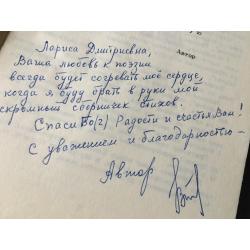 Автор
Лариса Дмитриевна,
Ваша любовь к поэзии
всегда будет согревать моё сердце,
когда я буду брать в руки мой
скромный сборничек стихов.
СпасиБо(г) Радости и счастья Вам!
С уважением и благодарностью –
Автор